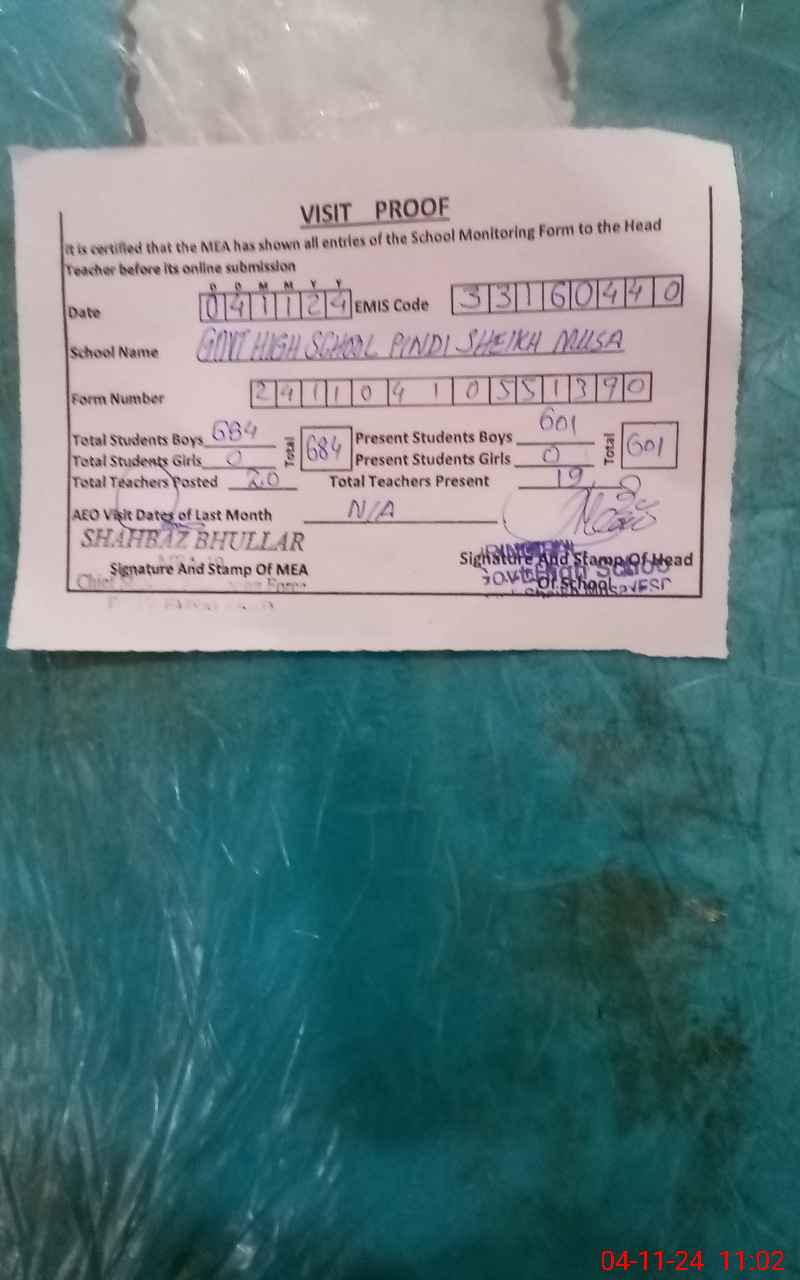 VISIT PROOF
It is certified that the MEA has shown all entries of the School Monitoring Form to the Head
Teacher before its online submission
D D M M Y Y
Date 041124 EMIS Code 33160440
School Name GOVT HIGH SCHOOL PINDI SHEIKH MUSA
Form Number 24110410551390
Total Students Boys 684 Total 684 Present Students Boys 601 Total 601
Total Students Girls 0 Present Students Girls 0
Total Teachers Posted 20 Total Teachers Present 19
AEO Visit Dates of Last Month N/A
SHAHBAZ BHULLAR
Signature And Stamp Of MEA Signature And Stamp Of Head
Of School
Govt High School
Chief Force
04-11-24 11:02